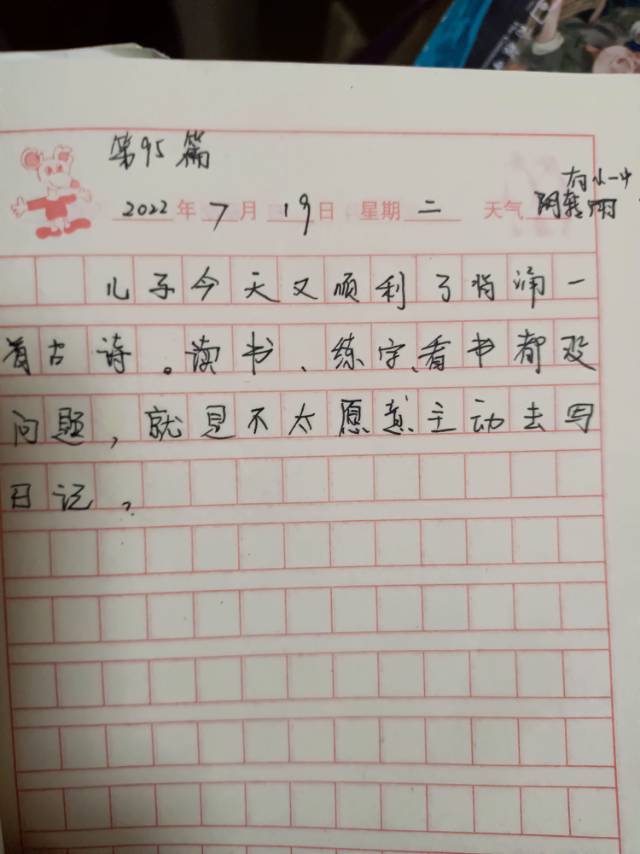 第95篇
有小一中
2022年7月19日 星期二 天气 阴转雨
儿子今天又顺利了背诵一
首古诗。读书、练字、看书都没
问题，就是不太愿意主动去写
日记。